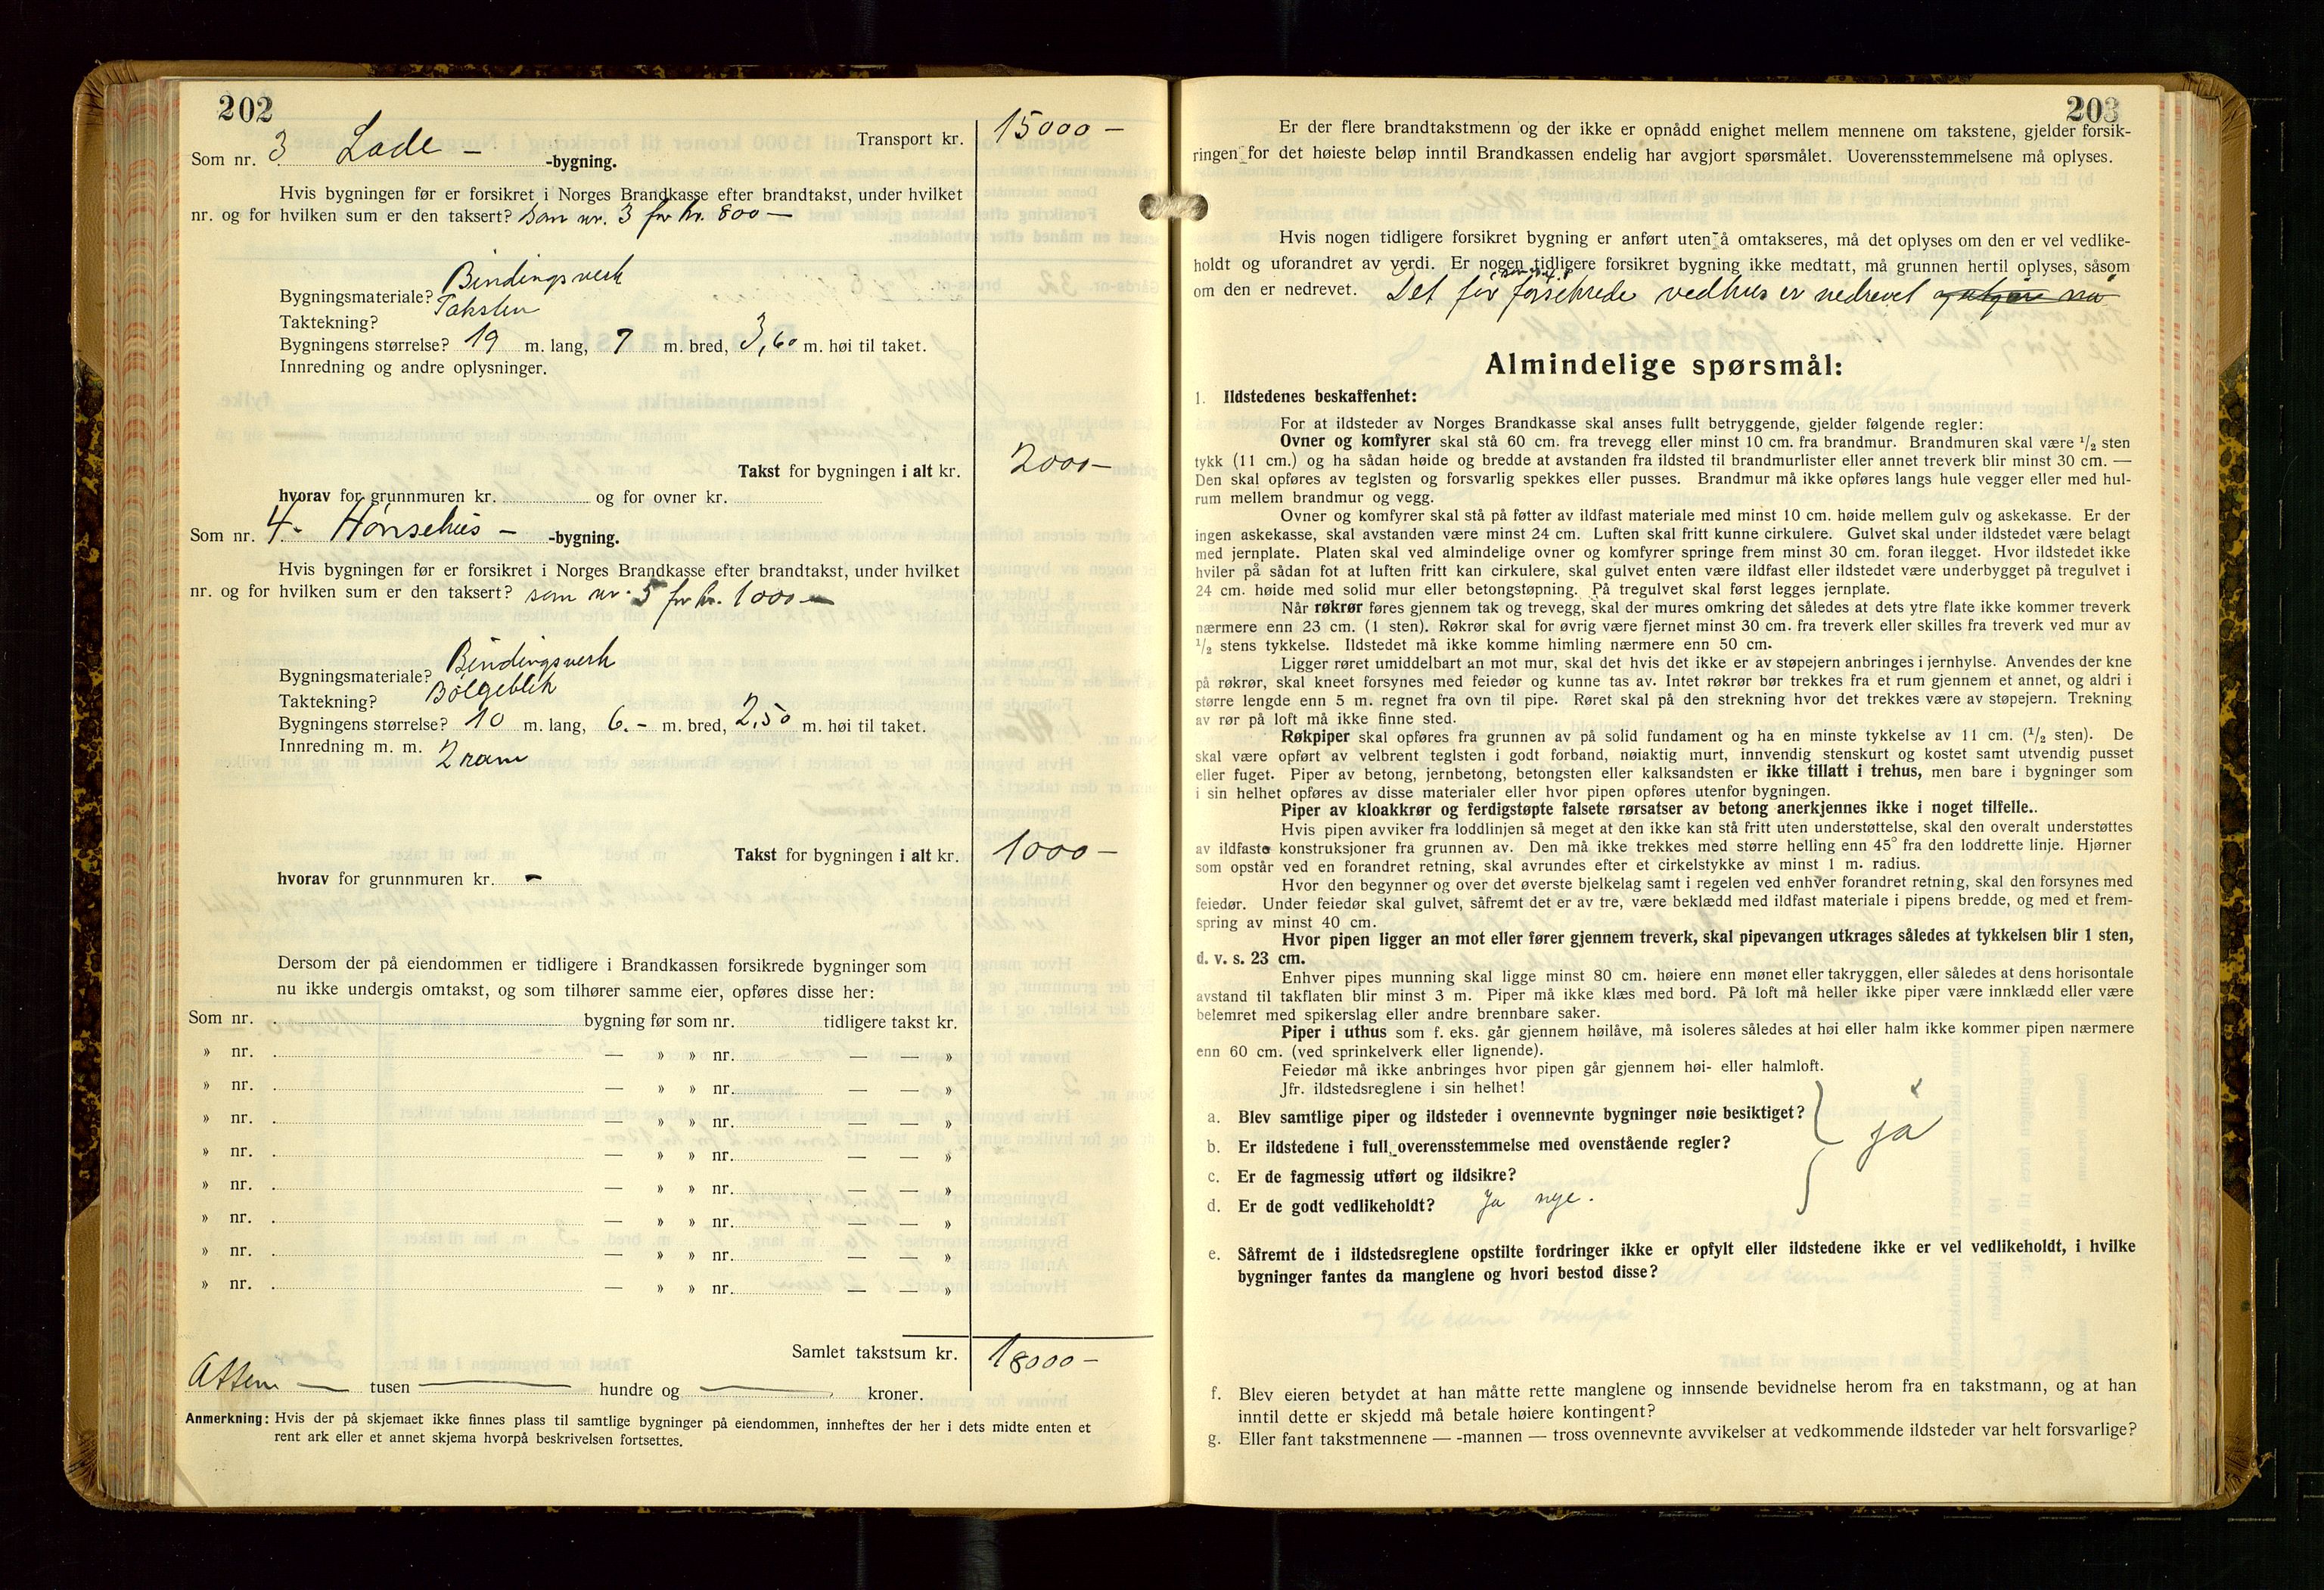 202
Transport kr. 15000 —
Som nr. 3 Lade — -bygning.
Hvis bygningen før er forsikret i Norges Brandkasse efter brandtakst, under hvilket
nr. og for hvilken sum er den taksert? som nr. 3 for kr. 800 —
Bygningsmateriale? Bindingsverk
Taktekning? Taksten
Bygningens størrelse? 19 m. lang, 7 m. bred, 3,60 m. høi til taket.
Innredning og andre oplysninger.
Takst for bygningen i alt kr. 2000 —
hvorav for grunnmuren kr. og for ovner kr.
Som nr. 4. Hønsehus — -bygning.
Hvis bygningen før er forsikret i Norges Brandkasse efter brandtakst, under hvilket
nr. og for hvilken sum er den taksert? som nr. 5 for kr. 1000 —
Bygningsmateriale? Bindingsverk
Taktekning? Bølgeblik
Bygningens størrelse? 10 m. lang, 6. — m. bred, 2,50 m. høi til taket.
Innredning m. m. 2 rom
Takst for bygningen i alt kr. 1000 —
hvorav for grunnmuren kr. —
Dersom der på eiendommen er tidligere i Brandkassen forsikrede bygninger som
nu ikke undergis omtakst, og som tilhører samme eier, opføres disse her:
Som nr. bygning før som nr. tidligere takst kr.
» nr. — » » nr. — — »
» nr. — » » nr. — — »
» nr. — » » nr. — — »
» nr. — » » nr. — — »
» nr. — » » nr. — — »
» nr. — » » nr. — — »
» nr. — » » nr. — — »
» nr. — » » nr. — — »
Samlet takstsum kr. 18000 —
Atten — tusen — hundre og — kroner.
Anmerkning: Hvis der på skjemaet ikke finnes plass til samtlige bygninger på eiendommen, innheftes der her i dets midte enten et
rent ark eller et annet skjema hvorpå beskrivelsen fortsettes.
203
Er der flere brandtakstmenn og der ikke er opnådd enighet mellem mennene om takstene, gjelder forsik-
ringen for det høieste beløp inntil Brandkassen endelig har avgjort spørsmålet. Uoverensstemmelsene må oplyses.
Hvis nogen tidligere forsikret bygning er anført uten å omtakseres, må det oplyses om den er vel vedlike-
holdt og uforandret av verdi. Er nogen tidligere forsikret bygning ikke medtatt, må grunnen hertil oplyses, såsom
om den er nedrevet. Det før som nr. 4 forsikrede vedhus er nedrevet
Almindelige spørsmål:
1. Ildstedenes beskaffenhet:
For at ildsteder av Norges Brandkasse skal anses fullt betryggende, gjelder følgende regler:
Ovner og komfyrer skal stå 60 cm. fra trevegg eller minst 10 cm. fra brandmur. Brandmuren skal være 1/2 sten
tykk (11 cm.) og ha sådan høide og bredde at avstanden fra ildsted til brandmurlister eller annet treverk blir minst 30 cm. —
Den skal opføres av teglsten og forsvarlig spekkes eller pusses. Brandmur må ikke opføres langs hule vegger eller med hul-
rum mellem brandmur og vegg.
Ovner og komfyrer skal stå på føtter av ildfast materiale med minst 10 cm. høide mellem gulv og askekasse. Er der
ingen askekasse, skal avstanden være minst 24 cm. Luften skal fritt kunne cirkulere. Gulvet skal under ildstedet være belagt
med jernplate. Platen skal ved almindelige ovner og komfyrer springe frem minst 30 cm. foran ilegget. Hvor ildstedet ikke
hviler på sådan fot at luften fritt kan cirkulere, skal gulvet enten være ildfast eller ildstedet være underbygget på tregulvet i
24 cm. høide med solid mur eller betongstøpning. På tregulvet skal først legges jernplate.
Når røkrør føres gjennem tak og trevegg, skal der mures omkring det således at dets ytre flate ikke kommer treverk
nærmere enn 23 cm. (1 sten). Røkrør skal for øvrig være fjernet minst 30 cm. fra treverk eller skilles fra treverk ved mur av
1/2 stens tykkelse. Ildstedet må ikke komme himling nærmere enn 50 cm.
Ligger røret umiddelbart an mot mur, skal det hvis det ikke er av støpejern anbringes i jernhylse. Anvendes der kne
på røkrør, skal kneet forsynes med feiedør og kunne tas av. Intet røkrør bør trekkes fra et rum gjennem et annet, og aldri i
større lengde enn 5 m. regnet fra ovn til pipe. Røret skal på den strekning hvor det trekkes være av støpejern. Trekning
av rør på loft må ikke finne sted.
Røkpiper skal opføres fra grunnen av på solid fundament og ha en minste tykkelse av 11 cm. (1/2 sten). De
skal være opført av velbrent teglsten i godt forband, nøiaktig murt, innvendig stenskurt og kostet samt utvendig pusset
eller fuget. Piper av betong, jernbetong, betongsten eller kalksandsten er ikke tillatt i trehus, men bare i bygninger som
i sin helhet opføres av disse materialer eller hvor pipen opføres utenfor bygningen.
Piper av kloakkrør og ferdigstøpte falsete rørsatser av betong anerkjennes ikke i noget tilfelle..
Hvis pipen avviker fra loddlinjen så meget at den ikke kan stå fritt uten understøttelse, skal den overalt understøttes
av ildfaste konstruksjoner fra grunnen av. Den må ikke trekkes med større helling enn 45° fra den loddrette linje. Hjørner
som opstår ved en forandret retning, skal avrundes efter et cirkelstykke av minst 1 m. radius.
Hvor den begynner og over det øverste bjelkelag samt i regelen ved enhver forandret retning, skal den forsynes med
feiedør. Under feiedør skal gulvet, såfremt det er av tre, være beklædd med ildfast materiale i pipens bredde, og med et frem-
spring av minst 40 cm.
Hvor pipen ligger an mot eller fører gjennem treverk, skal pipevangen utkrages således at tykkelsen blir 1 sten,
d. v. s. 23 cm.
Enhver pipes munning skal ligge minst 80 cm. høiere enn mønet eller takryggen, eller således at dens horisontale
avstand til takflaten blir minst 3 m. Piper må ikke klæs med bord. På loft må heller ikke piper være innklædd eller være
belemret med spikerslag eller andre brennbare saker.
Piper i uthus som f. eks. går gjennem høilåve, må isoleres således at høi eller halm ikke kommer pipen nærmere
enn 60 cm. (ved sprinkelverk eller lignende).
Feiedør må ikke anbringes hvor pipen går gjennem høi- eller halmloft.
Jfr. ildstedsreglene i sin helhet!
a. Blev samtlige piper og ildsteder i ovennevnte bygninger nøie besiktiget?
b. Er ildstedene i full overensstemmelse med ovenstående regler? ja
c. Er de fagmessig utført og ildsikre?
d. Er de godt vedlikeholdt? Ja nye.
e. Såfremt de i ildstedsreglene opstilte fordringer ikke er opfylt eller ildstedene ikke er vel vedlikeholdt, i hvilke
bygninger fantes da manglene og hvori bestod disse?
f. Blev eieren betydet at han måtte rette manglene og innsende bevidnelse herom fra en takstmann, og at han
inntil dette er skjedd må betale høiere kontingent?
g. Eller fant takstmennene — -mannen — tross ovennevnte avvikelser at vedkommende ildsteder var helt forsvarlige?